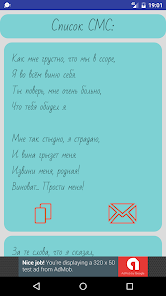 19:01
Список СМС:
Как мне грустно, что мы в ссоре,
Я во всём виню себя.
Ты поверь, мне очень больно,
Что тебя обидел я.
Мне так стыдно, я страдаю,
И вина грызёт меня.
Извини меня, родная!
Виноват... Прости меня!
За те слова, что я сказал,
Nice job! You're displaying a 320 x 50
test ad from AdMob.